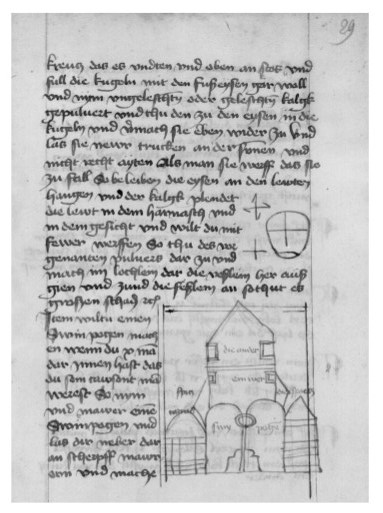 29
kreucz das es vndten vnd oben an stos vnd
full die kugeln mit den fußeysen gar woll
vnd nym vngeleschtn oder geleschtn kalgk
gepuluert vnd thu den zu den eysen in die
kugeln vnd mach sie eben wider zu vnd
las sie newr trucken an der sonen vnd
nicht recht Als man sie werff das sie
zu fall So beleiben die eysen an den lewten
hangen vnd der kalgk plendet
die lewt in dem harnasch vnd
in dem gesicht vnd wilt du mit
fewer werffen So thu des
genanten puluers dar zu vnd
mach im lochlein dar die her auß
gien vnd zund die an so thut es
grossen schad
Item wiltu einen
Swinpogen mach
en wenn du
dar Innen hast das
du sein
werest So nym
vnd mawer eine
Swinpogen vnd
las dar neber dar
an scherpff mawr
ern vnd mache
die ander
ein wer
swin pogen